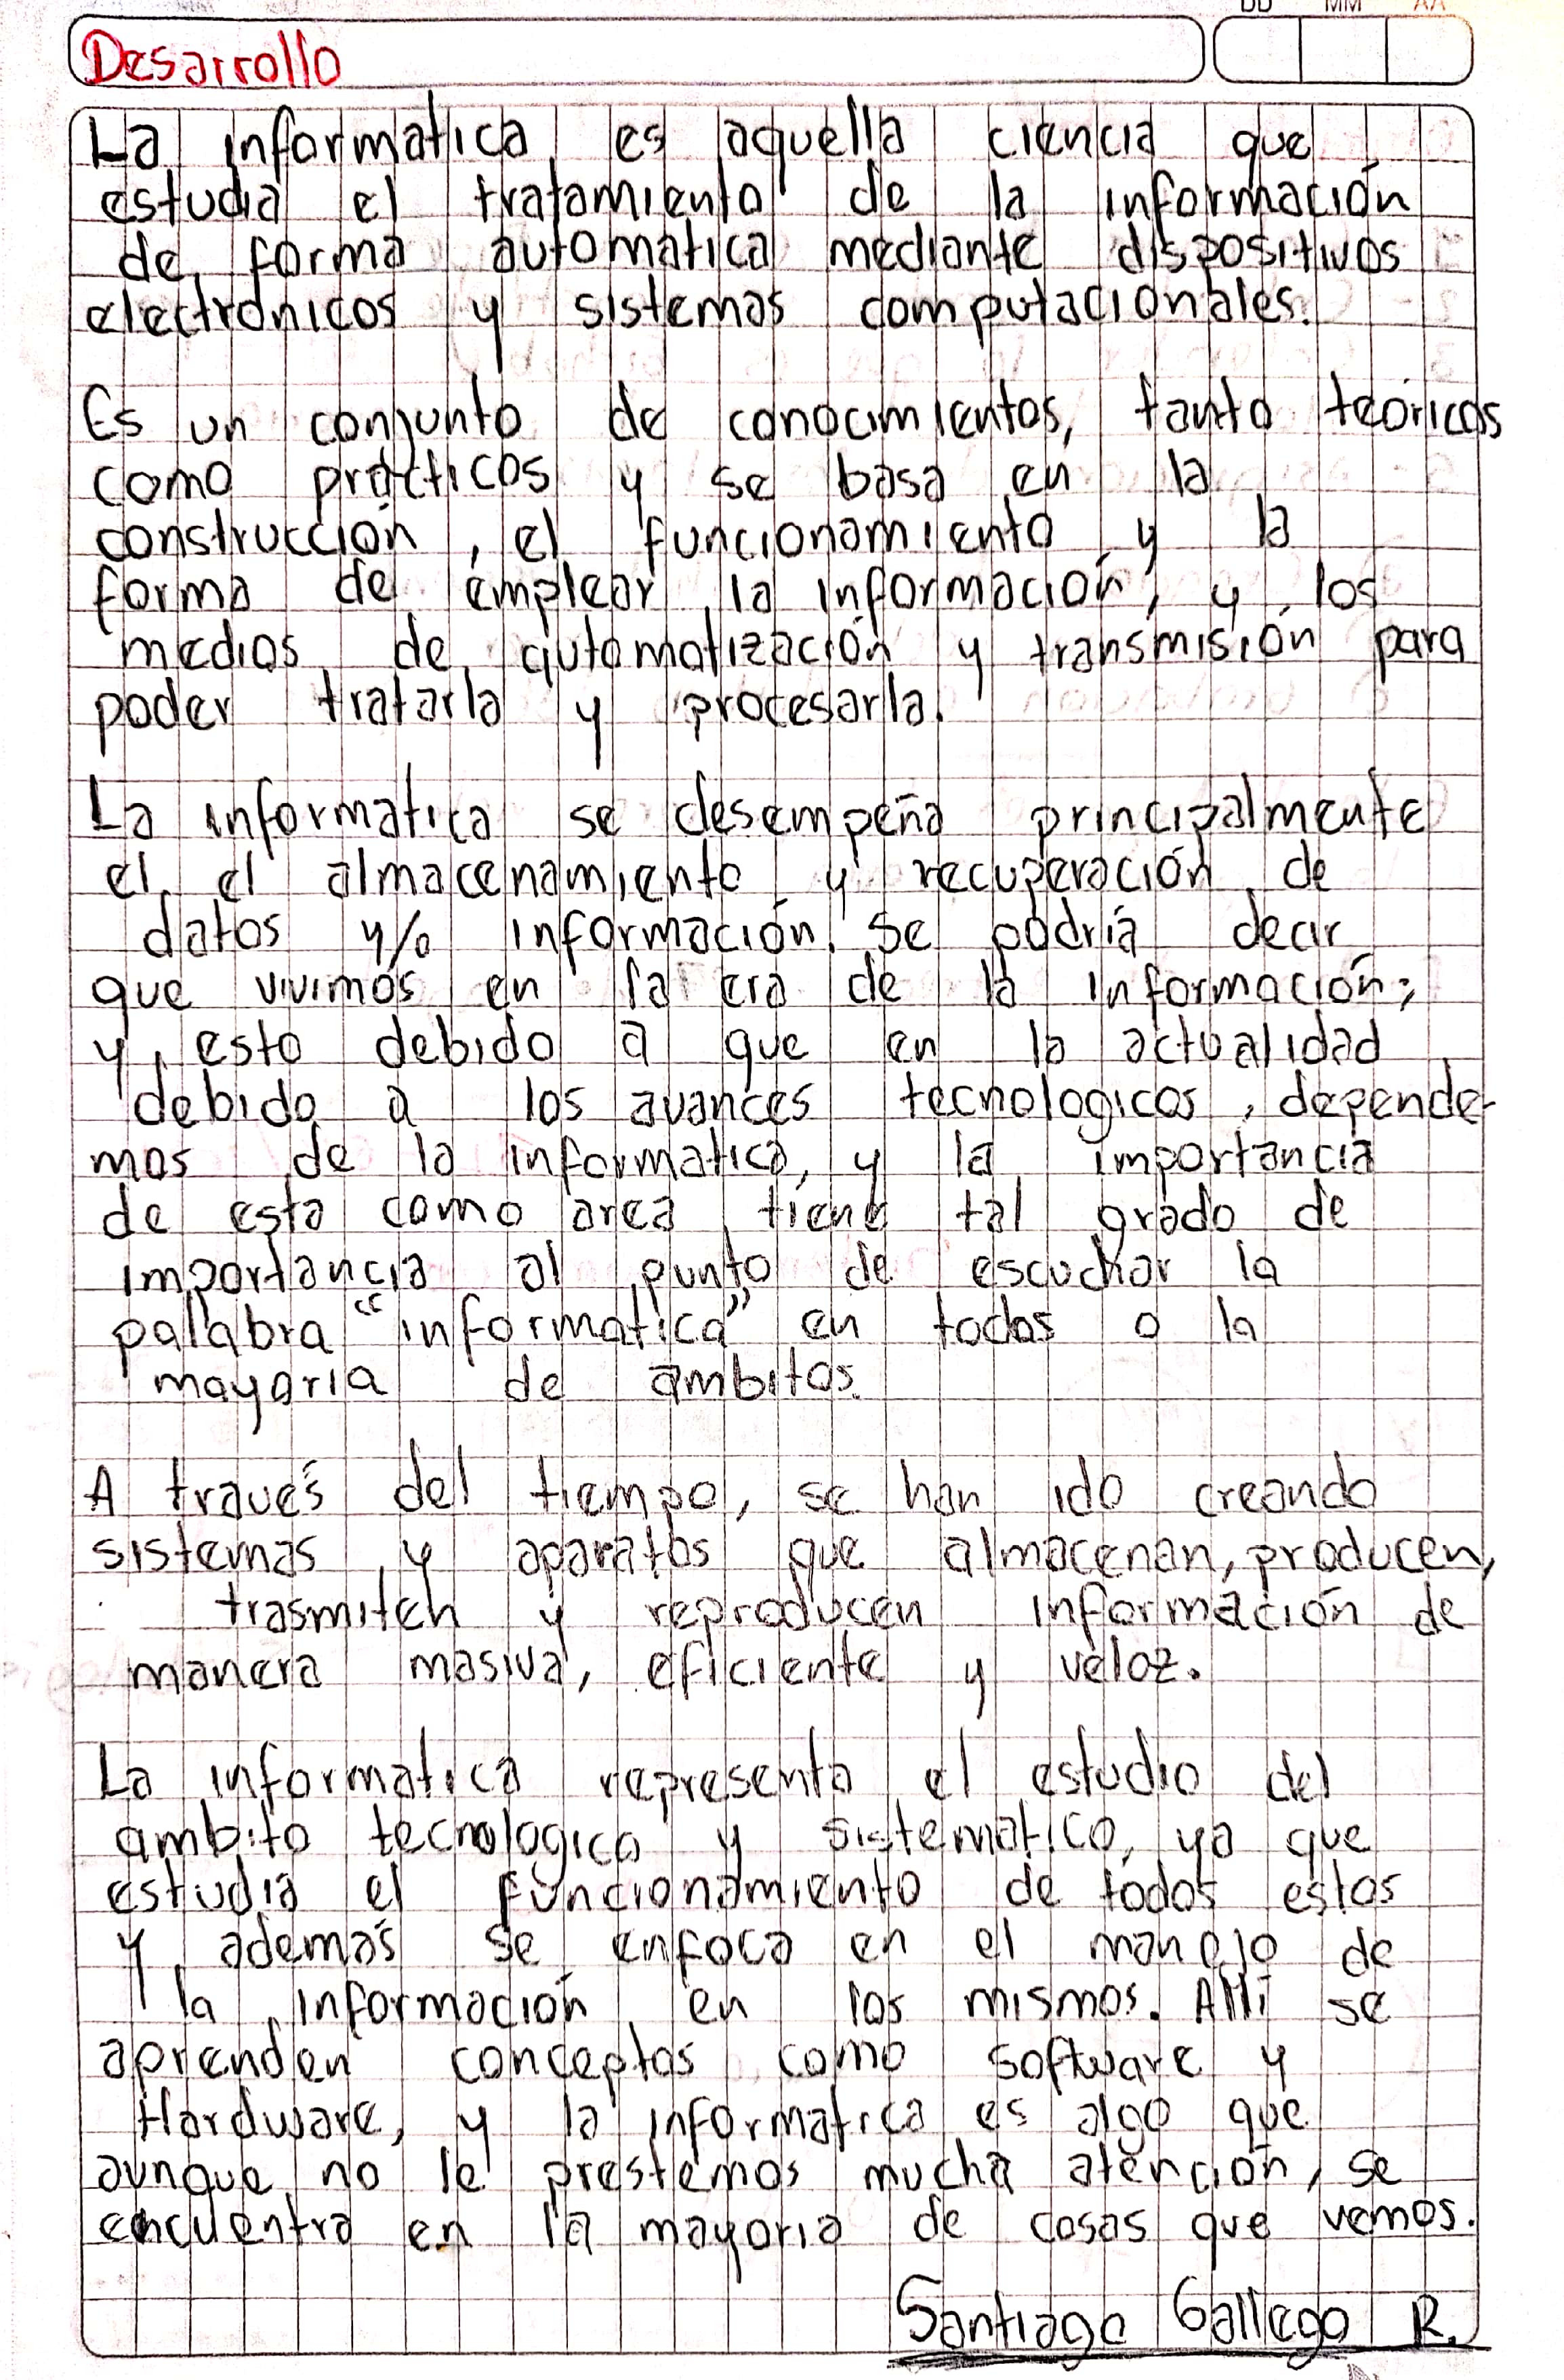 DD MM AA
Desarrollo
La informatica es aquella ciencia que
estudia el tratamiento de la información
de forma automatica mediante dispositivos
electronicos y sistemas computacionales.
Es un conjunto de conocimientos, tanto teóricos
como prácticos y se basa en la
construcción, el funcionamiento y la
forma de emplear la información, y los
medios de automatización y transmisión para
poder tratarla y procesarla.
La informatica se desempeña principalmente
el el almacenamiento y recuperación de
datos y/o información. Se podría decir
que vivimos en la era de la información;
y esto debido a que en la actualidad
debido a los avances tecnologicos, depende-
mos de la informatica, y la importancia
de esta como area tiene tal grado de
importancia al punto de escuchar la
palabra "informatica" en todos o la
mayoria de ambitos.
A través del tiempo, se han ido creando
sistemas y aparatos que almacenan, producen,
trasmiten y reproducen información de
manera masiva, eficiente y veloz.
La informatica representa el estudio del
ambito tecnologico y sistematico, ya que
estudia el funcionamiento de todos estos
y además se enfoca en el manejo de
la información en los mismos. Allí se
aprenden conceptos como software y
Hardware, y la informatica es algo que
aunque no le prestemos mucha atención, se
encuentra en la mayoria de cosas que vemos.
Santiago Gallego R.